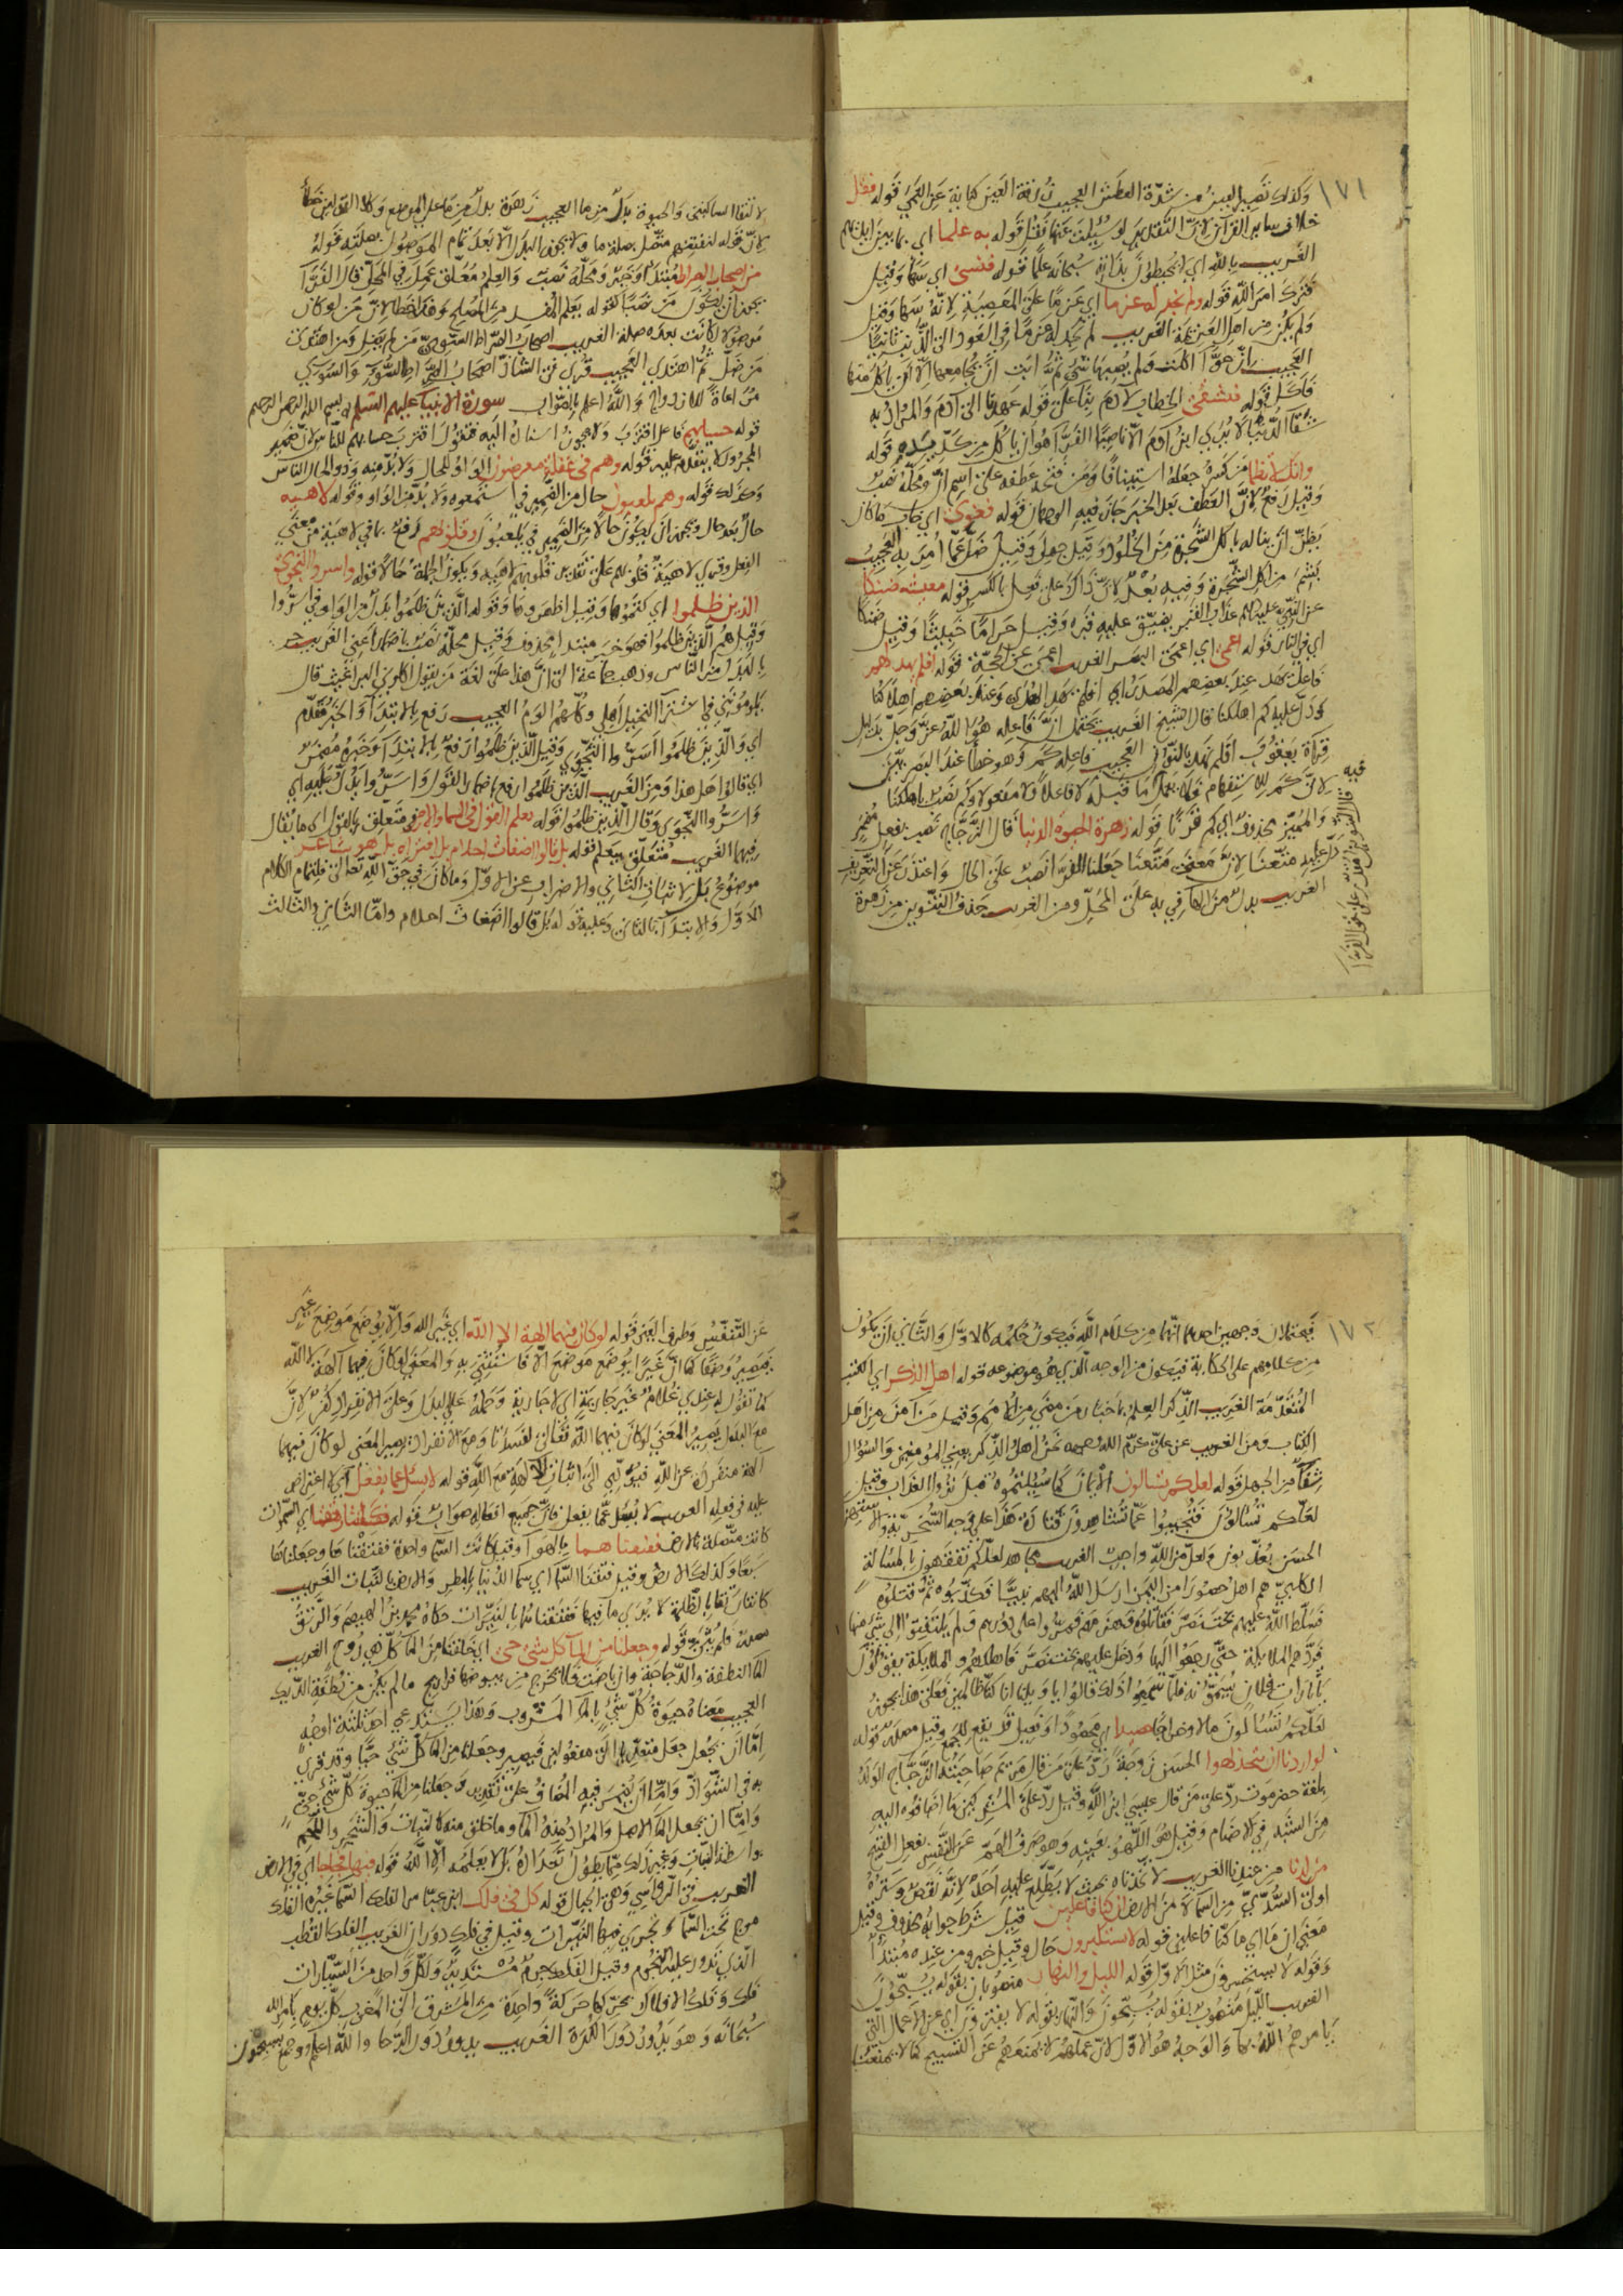 ١٧١
وكذلك تصير العين من شدة العطش العجيب زرقة العين كناية عن العمى قوله فقل
خلاف سائر القرآن لان التقدير لو سئلت عنها فقل قوله به علما اي بما بين ايديهم
الغريب بالله اي لا يحيطون بذاته سبحانه علما قوله فنسى اي سها وقيل
فترك امر الله قوله ولم نجد له عزما اي عزما على المعصية لانه سها وقيل
ولم يكن من اهل العزيمة الغريب لم نجد له عزما في العود الى الذنب ثانيا
العجيب ان حوا اكلت ولم يصبها شئ ثم ابت ان يجامعها الا ان ياكل منها
فاكل قوله فتشقى الخطاب لادم بناء على قوله عهدنا الى آدم والمراد به
شقا الدنيا لا يرى ابن آدم الا ناصبا الفرا هو ان ياكل من كد يده قوله
وانك لا تظما من كسره جعله استينافا ومن فتحه عطفه على اسم ان ومحله نصب
وقيل رفع لان العطف بعد الخبر جاز فيه الوجهان قوله فغوى اي خاب ما كان
يظن ان يناله باكل الشجرة من الخلود وقيل جهل وقيل ضل عما امر به العجيب
بشم من اكل الشجرة وفيه بعد لان ذاك على فعل بالكسر قوله معيشة ضنكا
عن النبي عليه السلام عذاب القبر يضيق عليه قبره وقيل حراما خبيثا وقيل ضنكا
اي في النار قوله اعمى اي اعمى البصر الغريب اعمى عن الحجة قوله افلم يهد لهم
فاعل يهد عند بعضهم المصدر اي افلم يهد الهدى وعند بعضهم اهلاكنا
ودل عليه كم اهلكنا قال الشيخ الغريب يحتمل ان فاعله هو الله عز وجل بدليل
قراة يعقوب افلم نهد بالنون العجيب فاعله كم وهو خطا عند البصريين
لان كم للاستفهام فلا يعمل ما قبله لا فاعلا ولا مفعولا وكم نصب باهلكنا
والمميز محذوف اي كم قرنا قوله زهرة الحيوة الدنيا قال الزجاج نصب بفعل مضمر
دل عليه متعنا لان معنى متعنا جعلنا الفرا نصب على الحال واعتذر عن التعريف
الغريب بدل من الها في به على المحل ومن الغريب حذف التنوين من زهرة
لالتقا الساكنين والحيوة بدل من ما العجيب زهرة بدل من ما على الموضع وكلا القولين خطأ
لان قوله لنفتنهم متصل بصلة ما ولا يجوز البدل الا بعد تمام الموصول بصلته قوله
من اصحاب الصراط مبتدأ وخبر ومحله نصب والعلم معلق عمل في المحل قال الفرا
يجوز ان يكون من نصبا كقوله يعلم المفسد من المصلح وهذا خطا لان من لو كان
موصولا لكانت بعده صلة الغريب اصحاب الصراط السوي من لم يضل ومن اهتدى
من ضل ثم اهتدى العجيب قرى في الشاذ اصحاب الصراط السوى والسوي
مراعاة للازدواج والله اعلم بالصواب سورة الانبيا عليهم السلم بسم الله الرحمن الرحيم
قوله حسابهم فاعل اقترب ولا يجوز اسناده اليه فتقول اقترب حسابهم للناس لان ضمير
المجرور لا يتقدم عليه قوله وهم في غفلة معرضون الواو للحال ولا بد منه وذو الحال الناس
وكذلك قوله وهم يلعبون حال من الضمير في استمعوه ولا بد من الواو وقوله لاهية
حال بعد حال ويجوز ان يكون حالا من الضمير في يلعبون وقلوبهم رفع بما في لاهية من معنى
الفعل وقرى لاهية قلوبهم على تقدير قلوبهم لاهية ويكون الجملة حالا قوله واسروا النجوى
الذين ظلموا اي كتموها وقيل اظهروها وقوله الذين ظلموا بدل من الواو في اسروا
وقيل هم الذين ظلموا فهو خبر مبتدا محذوف وقيل محله نصب باضمار اعني الغريب جر
بالبدل من الناس وذهب جماعة الى ان هذا على لغة من يقول اكلوني البراغيث قال
يلومونني في اشترا النخيل اهلي وكلهم الوم العجيب رفع بالابتدا والخبر مقدم
اي والذين ظلموا اسروا النجوى وقيل الذين ظلموا رفع بالابتدا وخبره مضمر
اي قالوا هل هذا ومن الغريب الذين ظلموا رفع باضمار القول واسروا يدل عليه اي
واسروا النجوى وقال الذين ظلموا قوله يعلم القول في السما والارض متعلق بالقول اي ما يقال
فيهما الغريب متعلق بيعلم قوله بل قالوا اضغاث احلام بل افتراه بل هو شاعر
موضوع بل لاثبات الثاني والاضراب عن الاول وما كان في حق الله تعالى فلتمام الكلام
الاول والابتدا بالثاني وعليه قوله بل قالوا اضغاث احلام واما الثاني والثالث
١٧٢
فيحتملان وجهين احدهما انهما من كلام الله فيكون حكمه كالاول والثاني ان يكون
من كلامهم على الحكاية فيكون من الوجه الذي هو موضوعه قوله اهل الذكر اي الكتب
المتقدمة الغريب الذكر العلم باخبار من مضى من الامم وقيل من آمن من اهل
الكتاب ومن الغريب عن علي كرم الله وجهه نحن اهل الذكر يعني المؤمنين والسؤال
شفاء من الجهل قوله لعلكم تسالون الايمان كما سئلتموه قبل نزول العذاب وقيل
لعلكم تسالون فتجيبوا عما تشاهدون قتادة هذا على وجه السخرية والاستهزاء
الحسن يعذبون ولعل من الله واجب الغريب مجاهد لعلكم تفقهون بالمسالة
الكلبي هم اهل حضورا من اليمن ارسل الله اليهم نبيا فكذبوه ثم قتلوه
فسلط الله عليهم بخت نصر فقاتلوه فهزمهم فمروا على دورهم فلم يلتفتوا الى شئ منها
فردهم الملايكة حتى رجعوا اليها ودخل عليهم بخت نصر فاهلكهم والملايكة يقولون
يا ثارات فلان فلما سمعوا ذلك قالوا يا ويلنا انا كنا ظالمين فعلى هذا يجوز
لعلكم تسالون مالا وخراجا حصيدا اي محصودا وفعيل قد يقع للجمع وقيل مصدر قوله
لو اردنا ان نتخذ لهوا الحسن زوجة رد على من قال مريم صاحبته الزجاج الولد
بلغة حضرموت رد على من قال عيسى ابن الله وقيل رد على المشركين ما اضافوه اليه
من الشبه في الاصنام وقيل هو اللهو بعينه وهو صرف الهم عن النفس بفعل القبيح
من لدنا من عندنا الغريب لاتخذناه بحيث لا يطلع عليه احد لانه نقص وستره
اولى السدي من السما لا من الارض ان كنا فاعلين قيل شرط جوابه محذوف وقيل
معنى ان ما اي ما كنا فاعلين قوله لا يستكبرون حال وقيل خبر ومن عنده مبتدأ
وقوله لا يستحسرون مثل الاول قوله الليل والنهار منصوبان بقوله يسبحون
الغريب الليل منصوب بقوله يسبحون والنهار بقوله لا يفترون اي عن الاعمال التي
يامرهم الله بها والوجه هو الاول لان عملهم لا يمنعهم عن التسبيح كما لا يمنعنا
عن التنفس وطرف العين قوله لو كان فيهما آلهة الا الله اي غير الله والا يوضع موضع غير
فيصير وصفا كما ان غيرا يوضع موضع الا فاستثنى به والمعنى لو كان فيهما آلهة لا الله
كما تقول له عندي غلام غير جارية اي لا جارية وحمله على البدل وعلى الانفراد كفر لان
مع البدل يصير المعنى لو كان فيهما الله تعالى لفسدتا ومع الانفراد يصير المعنى لو كان فيهما
آلهة منفردة عن الله فيؤدي الى اثبات الالهة مع الله قوله لا يسئل عما يفعل اي لا اعتراض
عليه في فعله الغريب لا يسئل عما يفعل فان جميع افعاله صواب قوله كانتا رتقا اي السموات
كانت متصلة بالارض ففتقناهما بالهوا وقيل كانت السما واحدة ففتقناها وجعلناها
سبعا وكذلك الارض وقيل فتقنا السما اي سما الدنيا بالمطر والارض بالنبات الغريب
كانتا رتقا بالظلمة لا يرى ما فيها ففتقناهما بالنيرات حكاه محمد بن الهيصم والرتق
مصدر فلم يثن قوله وجعلنا من الما كل شئ حي اي خلقنا من الما كل ذي روح الغريب
الما النطفة والدجاجة وان باضت فلا يخرج من بيوضها فراريج ما لم يكن من نطفة الديك
العجيب معناه حيوة كل شئ بالما المشروب وهذا يستدعي احد ثلثة اوجه
اما ان يجعل جعل متعديا الى مفعولين فيصير وجعلنا من الما كل شئ حيا وقد قرى
به في الشواذ واما ان يضمر فيه المضاف على تقدير وجعلنا من الما حيوة كل شئ حي
واما ان يجعل الما الاصل والمراد منه الما وما خلق منه كالنبات والشجر واللحم
بواسطة النبات وغير ذلك مما يطول تعداده بل لا يعلمه الا الله قوله فيها فجاجا اي في الارض
الغريب في الرواسي وهي الجبال قوله كل في فلك ابن عباس الفلك السما غيره الفلك
موج تحت السما تجري فيها النيرات وقيل في فلك دوران الغريب الفلك القطب
الذي تدور عليه النجوم وقيل الفلك جرم مستدير ولكل واحد من السيارات
فلك وفلك الافلاك يحركها حركة واحدة من المشرق الى المغرب كل يوم بامر الله
سبحانه وهو يدور دور الكرة الغريب يدور دور الرحا والله اعلم وجمع يسبحون